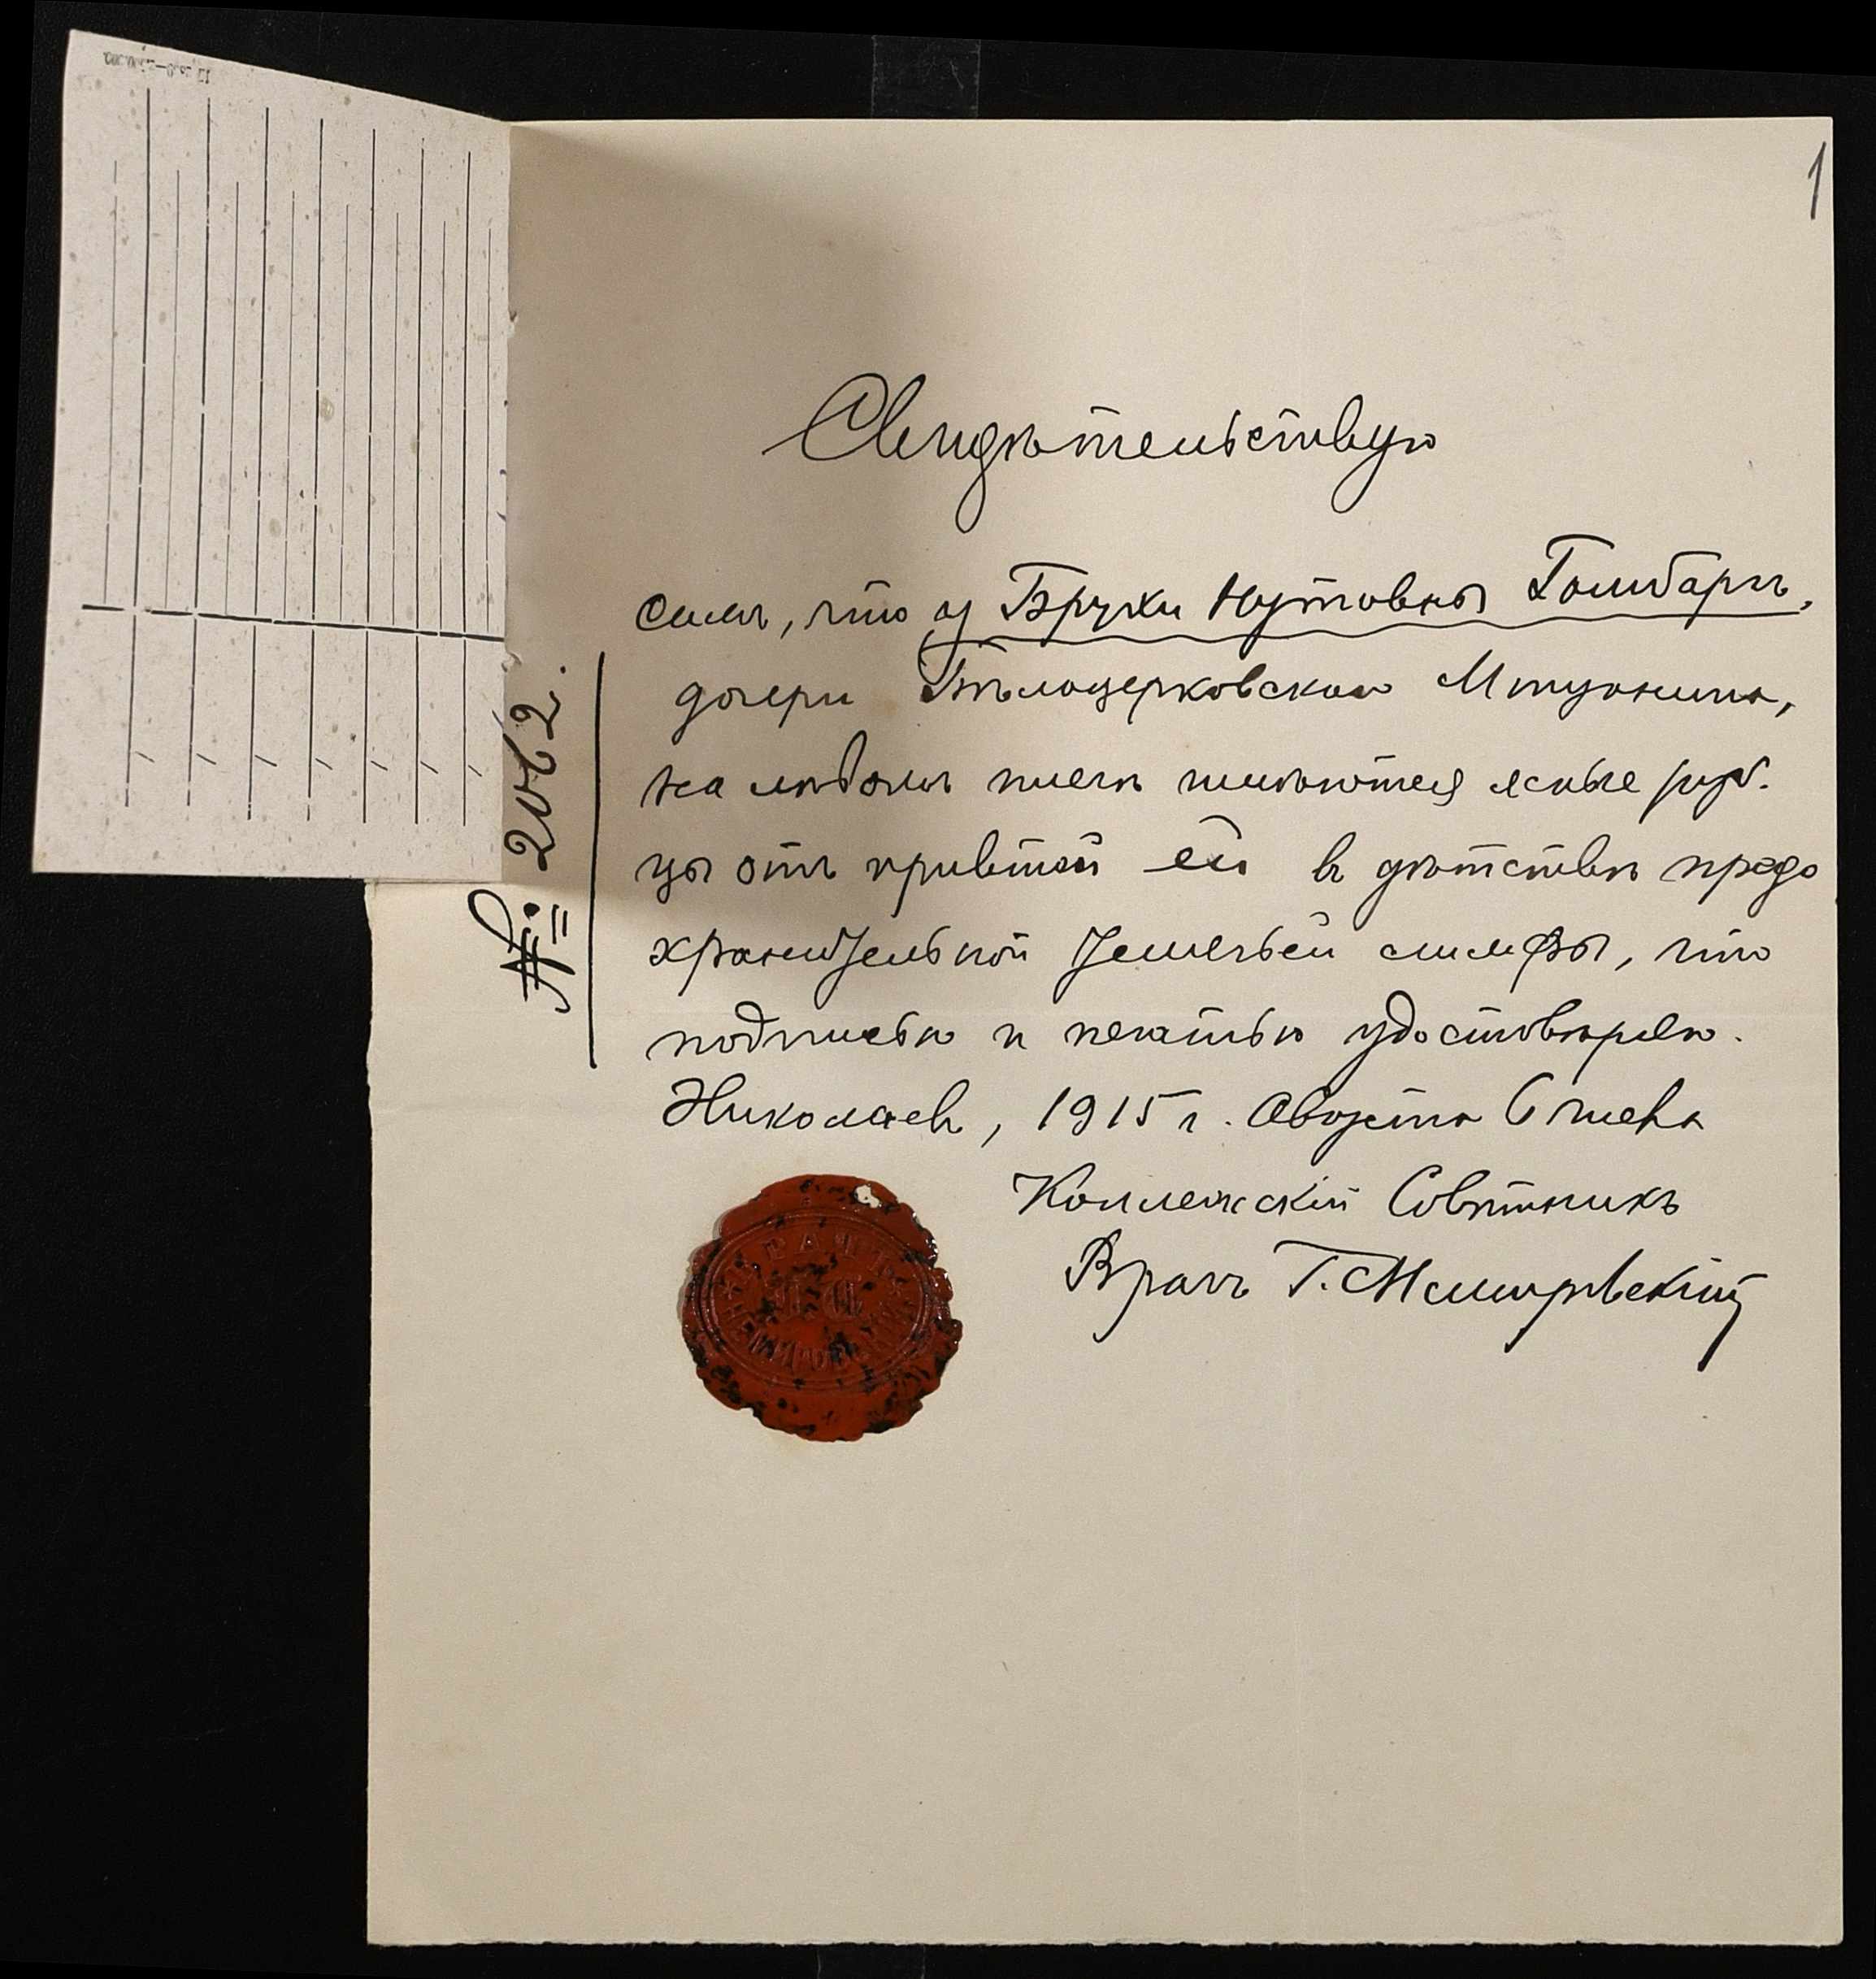 1
Свидѣтельствую
симъ, что у Брухи Нутовны Гольдбаръ,
дочери Бѣлоцерковскаго Мѣщанина,
на лѣвомъ плечѣ имѣются ясные руб-
цы отъ привитой ей въ дѣтствѣ предо
хранительной телячьей лимфы, что
подписью и печатью удостовѣряю.
Николаевъ, 1915 г. Августа 6 числа
Коллежскій Совѣтникъ
Врачъ Г.
№ 2062.